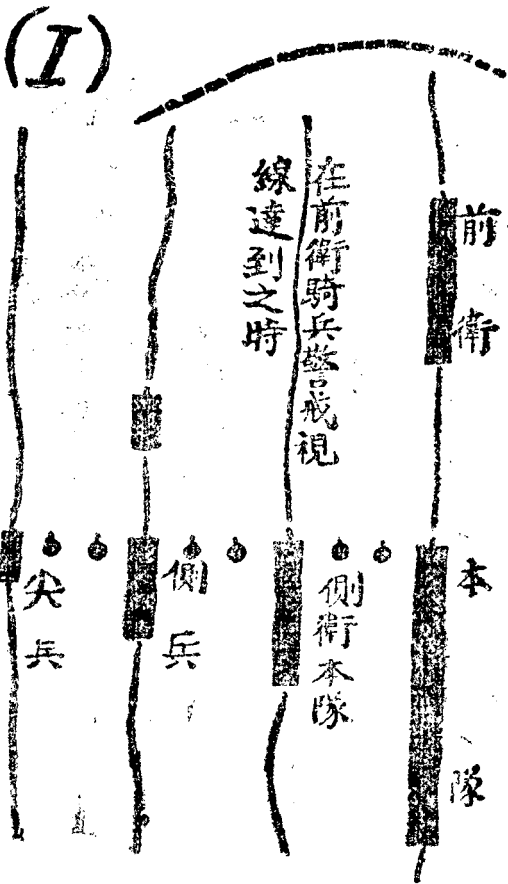 (I)
前衛
本隊
在前衛騎兵警戒視
線達到之時
側衛本隊
側兵
尖兵